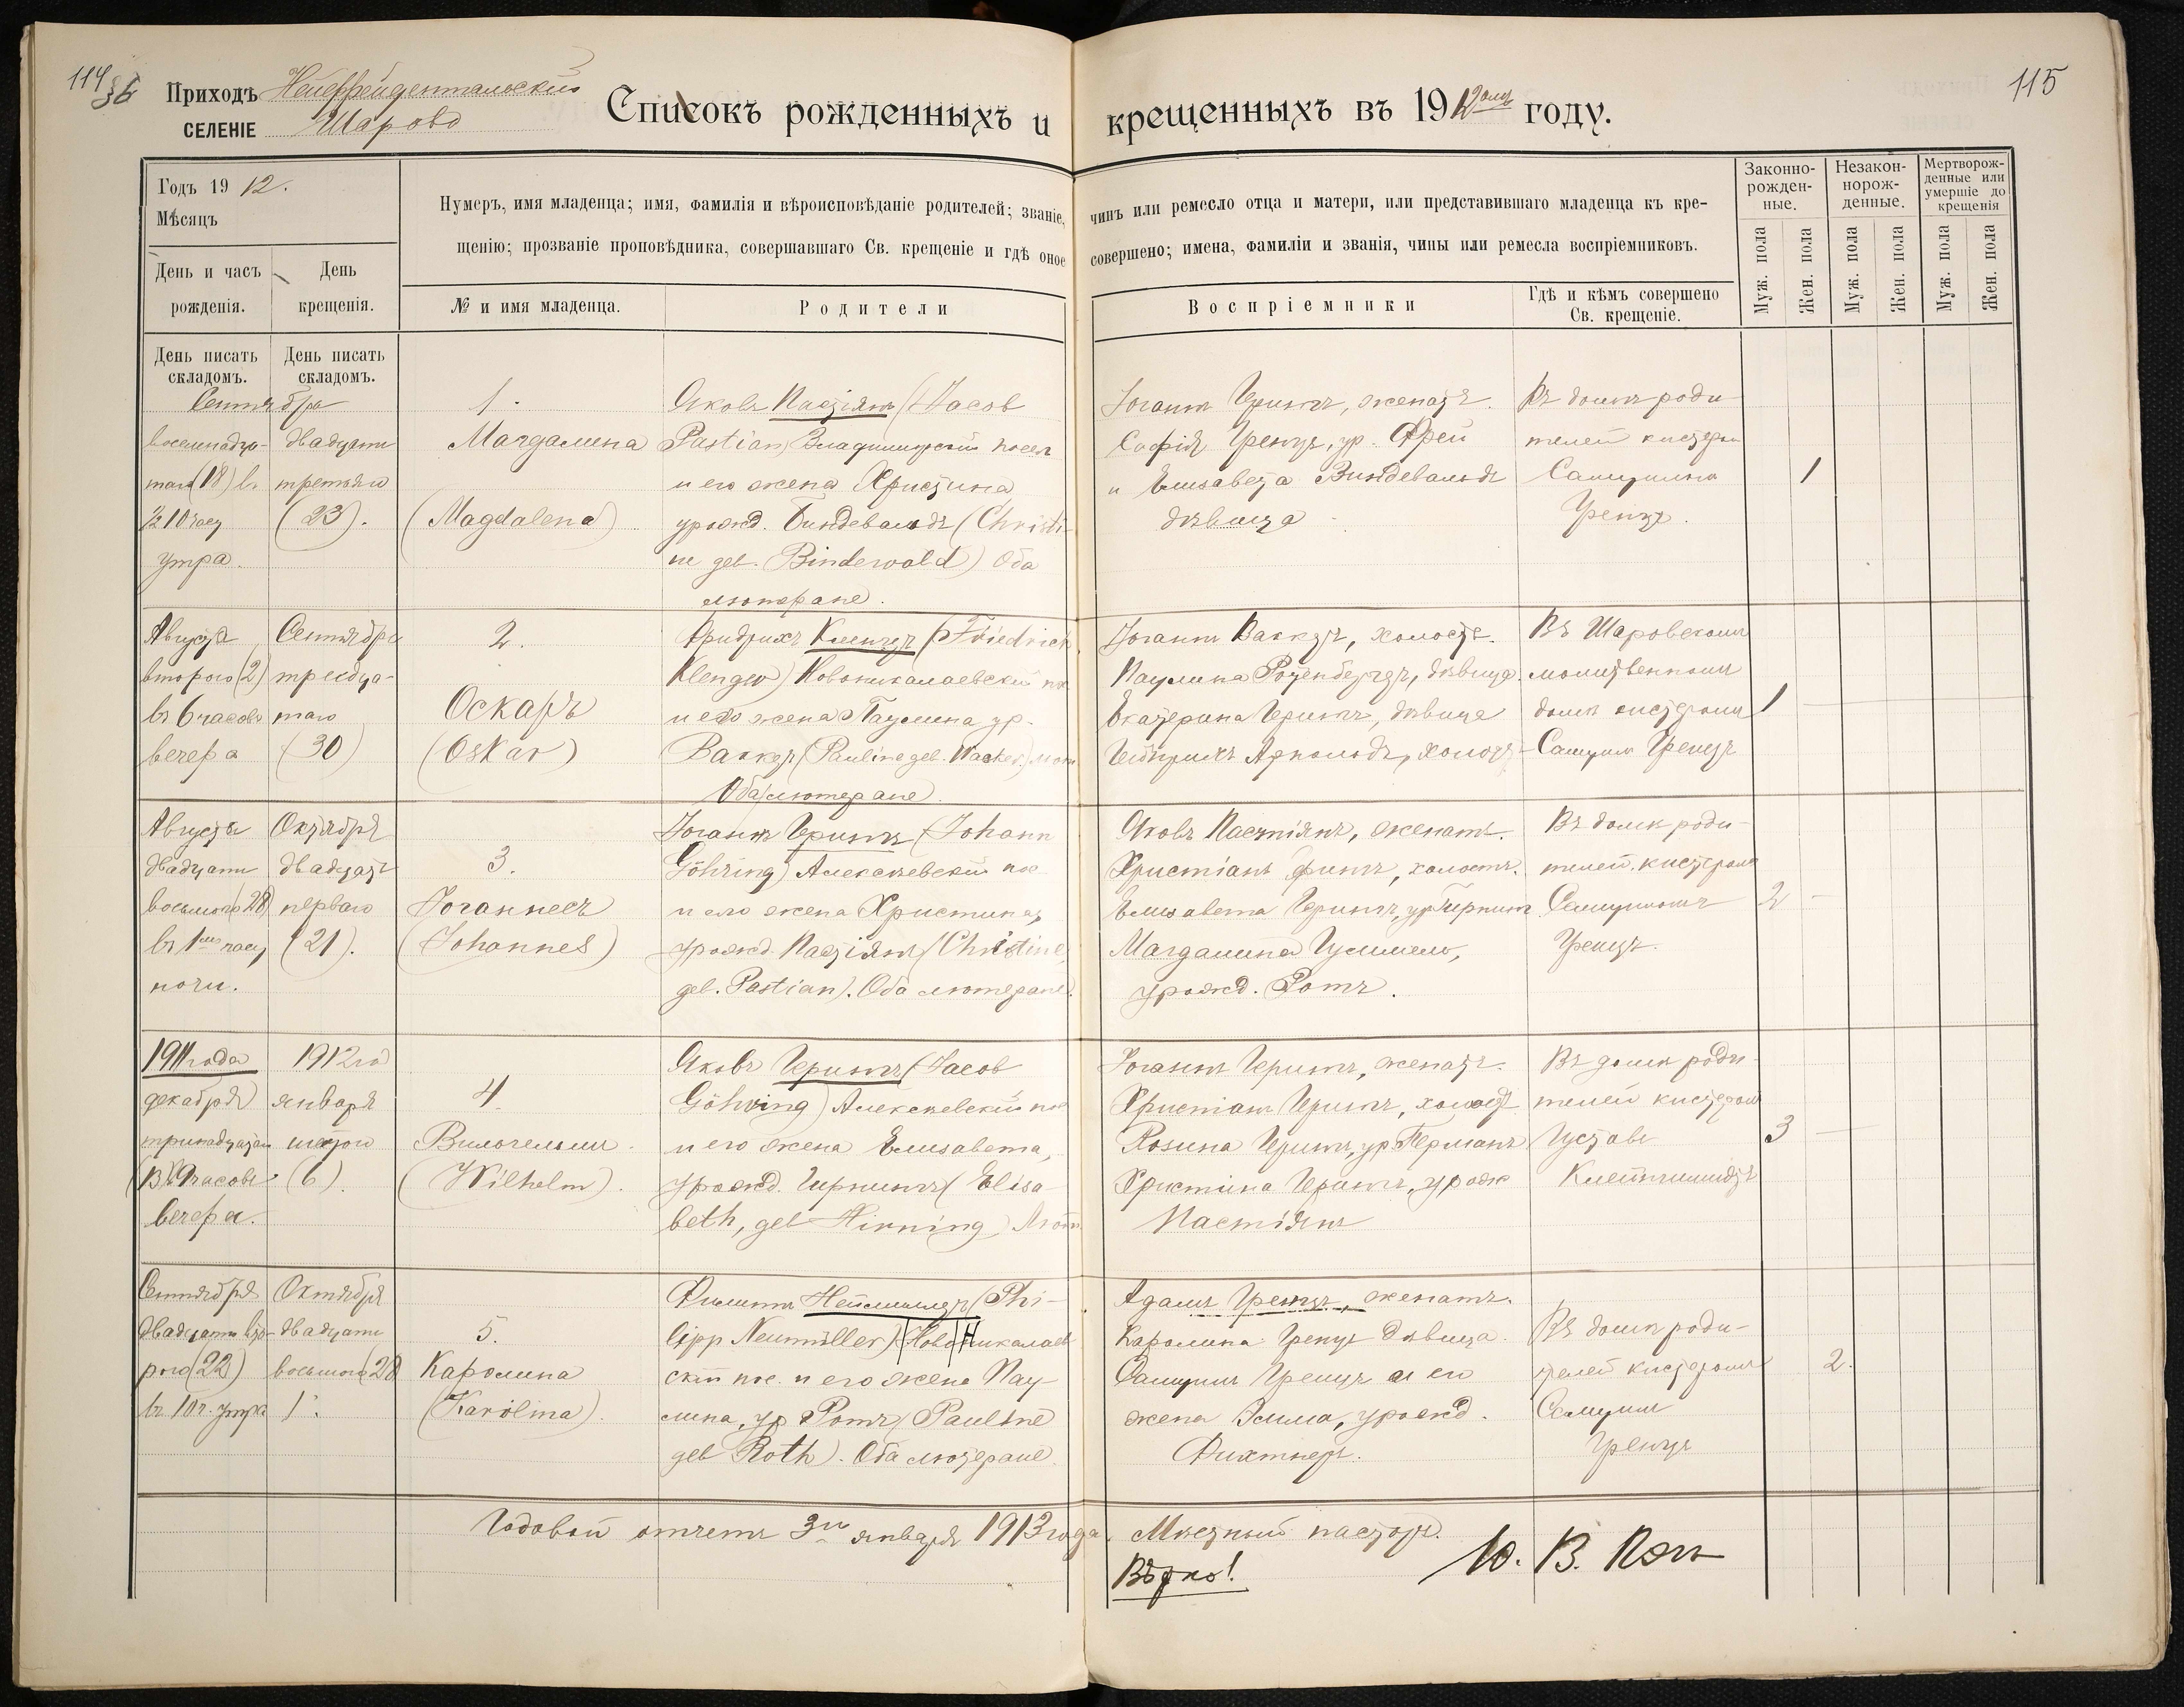 114
36
115
Приходъ Нейфрейдентальскій
СЕЛЕНІЕ Шарово
Списокъ рожденныхъ и крещенныхъ въ 1912омъ году.
Годъ 1912.
Мѣсяцъ
День и часъ рожденія.
День крещенія.
Нумеръ, имя младенца; имя, фамилія и вѣроисповѣданіе родителей; званіе, чинъ или ремесло отца и матери, или представившаго младенца къ кре-
щенію; прозваніе проповѣдника, совершавшаго Св. крещеніе и гдѣ оное совершено; имена, фамиліи и званія, чины или ремесла воспріемниковъ.
№ и имя младенца.
Родители
Воспріемники
Гдѣ и кѣмъ совершено Св. крещеніе.
Законно-
рожден-
ные.
Незакон-
норож-
денные.
Мертворож-
денные или
умершіе до
крещенія
Муж. пола
Жен. пола
Муж. пола
Жен. пола
Муж. пола
Жен. пола
День писать складомъ.
День писать складомъ.
Сентября
восемнадца-
таго (18) въ
10 часу
утра.
двадцати
третьяго
(23).
1.
Магдалина
(Magdalena)
Яковъ Пастіянъ (Jacob
Pastian) Владимирскій посел
и его жена Христина
урожд. Биндевальдъ (Christi-
ne geb. Bindewald) Оба
лютеране.
Іоганнъ Герингъ, женатъ.
Софія Гренцъ, ур. Фрей
и Елисавета Биндевальдъ
дѣвица
Въ домѣ роди-
телей кистеромъ
Самуиломъ
Гренцъ.
1
Августа
второго (2)
въ 6 часовъ
вечера
Сентября
тридца-
таго
(30)
2.
Оскаръ
(Oskar)
Фридрихъ Кленцъ (Friedrich
Новониколаевскій пос.
и его жена Паулина ур.
Ваккеръ (Pauline geb. Wacker)
Оба лютеране.
Іоганнъ Ваккеръ, холостъ.
Паулина Розенбергеръ, дѣвица.
Екатерина Герингъ, дѣвица
Гейнрихъ Арнольдъ, холост
Въ Шаровскомъ
молитвенномъ
домѣ кистеромъ
Самуилъ Гренцъ
1
Августа
двадцати
восьмого (28)
въ 1омъ часу
ночи.
Октября
двадцать
перваго
(21).
3.
Іоганнесъ
(Johannes)
Іоганнъ Герингъ (Johann
Göhring) Алексѣевскій пос
и его жена Христина,
урожд. Пастіянъ (Christine
geb. Pastian). Оба лютеране.
Яковъ Пастіянъ, женатъ.
Христіанъ Финкъ, холостъ.
Елисавета Герингъ, ур. Гирнингъ
Магдалина Гуммель,
урожд. Ротъ.
Въ домѣ роди-
телей кистеромъ
Самуиломъ
Гренцъ.
2
1911 года
декабря
тринадцатаго
(13) въ 9 часовъ
вечера.
1912 го
января
шестого
(6).
4.
Вильгельмъ
(Wilhelm).
Яковъ Герингъ (Jacob
Göhring) Алексѣевскій пос
и его жена Елисавета,
урожд. Гирнингъ (Elisa-
beth, geb Hirning) Лют.
Іоганнъ Герингъ, женатъ.
Христіанъ Герингъ, холост
Розина Герингъ, ур. Германъ
Христина Герингъ, урож
Пастіянъ
Въ домѣ роди-
телей кистеромъ
Густавъ
Клейншмидтъ
3
Сентября
двадцати вто-
рого (22)
въ 10 ч. утра
Октября
двадцати
восьмого (28
).
5.
Каролина
(Karolina).
Филиппъ Неймиллеръ (Phi-
lipp Neumüller) (Ново Николаев
скій пос. и его жена Пау
лина, ур Ротъ (Pauline
geb Roth). Оба лютеране.
Адамъ Гренцъ, женатъ.
Каролина Гренцъ дѣвица.
Самуилъ Гренцъ и его
жена Эмма, урожд.
Фихтнеръ.
Въ домѣ роди-
телей кистеромъ
Самуилъ
Гренцъ
2.
Годовой отчетъ 3го января 1913 года. Мѣстный пасторъ.
Вѣрно!
Ю. В.